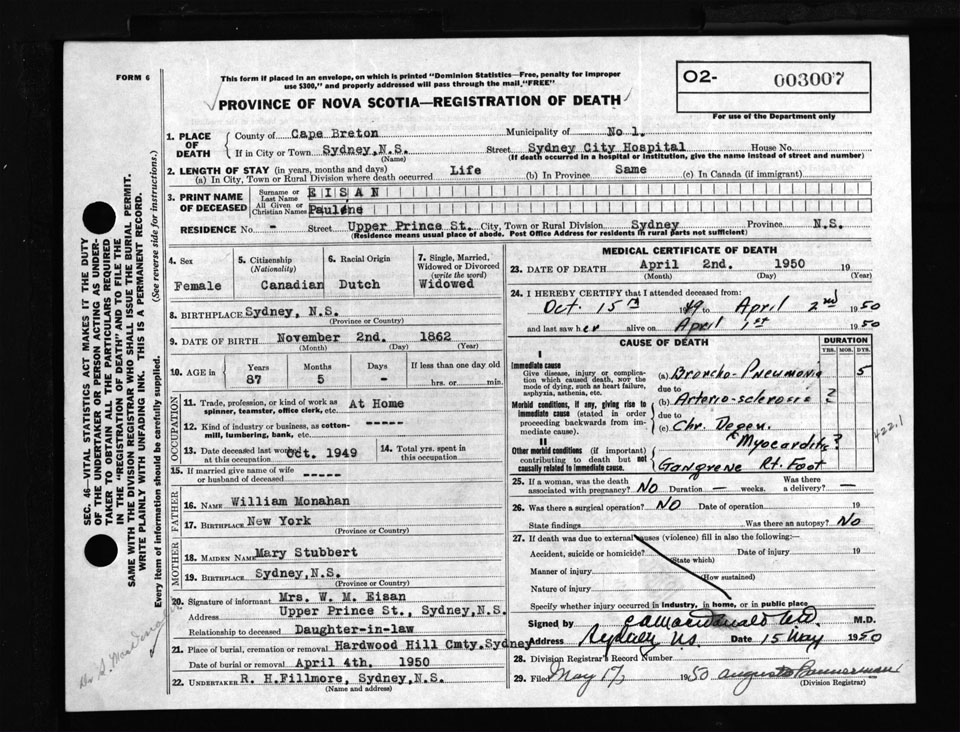 FORM 6
This form if placed in an envelope, on which is printed "Dominion Statistics—Free, penalty for improper
use $300," and properly addressed will pass through the mail "FREE"
PROVINCE OF NOVA SCOTIA—REGISTRATION OF DEATH
O2-
003007
For use of the Department only
1. PLACE OF DEATH
County of Cape Breton Municipality of No 1.
If in City or Town Sydney, N.S. Street Sydney City Hospital House No.
(Name) (If death occurred in a hospital or institution, give the name instead of street and number)
2. LENGTH OF STAY (in years, months and days)
(a) In City, Town or Rural Division where death occurred Life (b) In Province Same (c) In Canada (if immigrant)
3. PRINT NAME OF DECEASED
Surname or Last Name EISAN
All Given or Christian Names Paulene
RESIDENCE No. - Street Upper Prince St. City, Town or Rural Division Sydney Province N.S.
(Residence means usual place of abode. Post Office Address for residents in rural parts not sufficient)
4. Sex
Female
5. Citizenship
(Nationality)
Canadian
6. Racial Origin
Dutch
7. Single, Married,
Widowed or Divorced
(write the word)
Widowed
8. BIRTHPLACE Sydney, N.S.
(Province or Country)
9. DATE OF BIRTH November 2nd. 1862
(Month) (Day) (Year)
10. AGE in
Years Months Days If less than one day old
87 5 - hrs. or min.
OCCUPATION
11. Trade, profession, or kind of work as
spinner, teamster, office clerk, etc. At Home
12. Kind of industry or business, as cotton-
mill, lumbering, bank, etc. -----
13. Date deceased last worked
at this occupation Oct. 1949
14. Total yrs. spent in
this occupation
15. If married give name of wife
or husband of deceased -----
FATHER
16. NAME William Monahan
17. BIRTHPLACE New York
(Province or Country)
MOTHER
18. MAIDEN NAME Mary Stubbert
19. BIRTHPLACE Sydney, N.S.
(Province or Country)
20. Signature of informant Mrs. W. M. Eisan
Address Upper Prince St., Sydney, N.S.
Relationship to deceased Daughter-in-law
21. Place of burial, cremation or removal Hardwood Hill Cmty. Sydney
Date of burial or removal April 4th. 1950
22. UNDERTAKER R. H. Fillmore, Sydney, N.S.
(Name and address)
MEDICAL CERTIFICATE OF DEATH
23. DATE OF DEATH April 2nd. 1950 19
(Month) (Day) (Year)
24. I HEREBY CERTIFY that I attended deceased from:
Oct. 15th 1949 to April 2nd 1950
and last saw her alive on April 1st 1950
CAUSE OF DEATH
DURATION
YRS. MOS. DYS.
I
Immediate cause
Give disease, injury or complica-
tion which caused death, not the
mode of dying, such as heart failure,
asphyxia, asthenia, etc.
(a) Broncho-Pneumonia 5
due to
Morbid conditions, if any, giving rise to
immediate cause (stated in order
proceeding backwards from im-
mediate cause).
(b) Arterio-sclerosis ?
due to
(c) Chr. Degen.
Myocarditis ?
422.1
II
Other morbid conditions (if important)
contributing to death but not
causally related to immediate cause.
Gangrene Rt. Foot
25. If a woman, was the death
associated with pregnancy? NO Duration — weeks. Was there
a delivery? —
26. Was there a surgical operation? NO Date of operation 19
State findings Was there an autopsy? NO
27. If death was due to external causes (violence) fill in also the following:—
Accident, suicide or homicide? Date of injury 19
(State which)
Manner of injury
(How sustained)
Nature of injury
Specify whether injury occurred in industry, in home, or in public place
Signed by M.D.
Address Sydney N.S. Date 15 May 1950
28. Division Registrar's Record Number
29. Filed May 17 1950
(Division Registrar)
SEC. 46 VITAL STATISTICS ACT MAKES IT THE DUTY
OF THE UNDERTAKER OR PERSON ACTING AS UNDER-
TAKER TO OBTAIN ALL THE PARTICULARS REQUIRED
IN THE "REGISTRATION OF DEATH" AND TO FILE THE
SAME WITH THE DIVISION REGISTRAR WHO SHALL ISSUE THE BURIAL PERMIT.
WRITE PLAINLY WITH UNFADING INK. THIS IS A PERMANENT RECORD.
Every item of information should be carefully supplied. (See reverse side for instructions.)